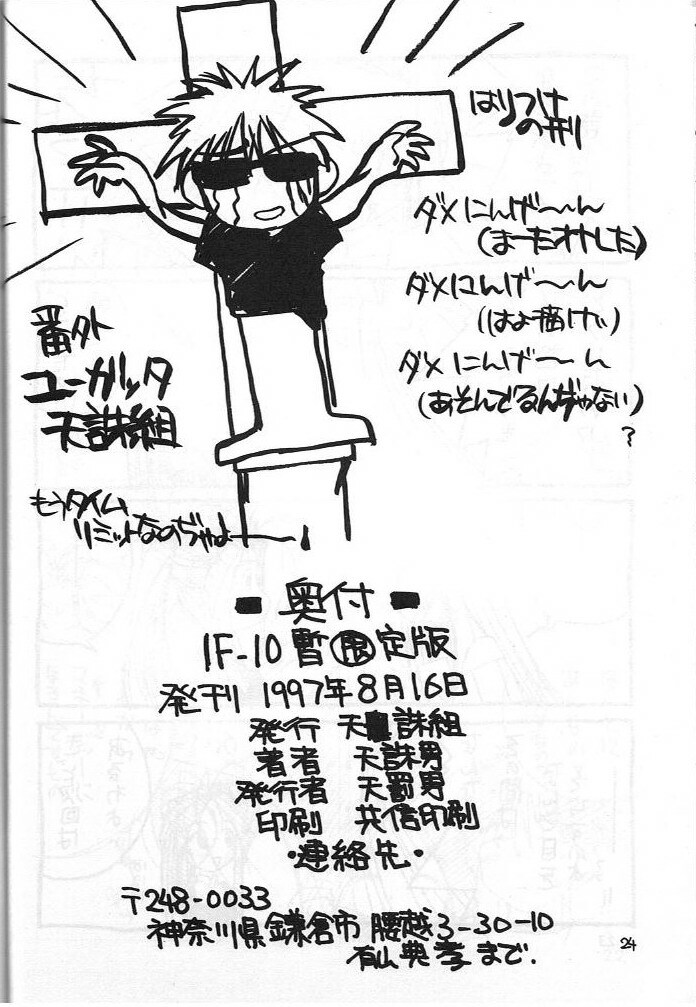 はりつけ
の刑
ダメにんげ〜〜ん
(まーたオトした)
ダメにんげ〜〜ん
(はよ描けい)
ダメにんげ〜〜ん
(あそんでるんぢゃない)
?
番外
ユーガッタ
天誅組
もうタイム
リミットなのぢゃよー
奥付
IF-10 暫限定版
発刊 1997年8月16日
発行 天誅組
著者 天誅男
発行者 天罰男
印刷 共信印刷
・連絡先・
〒248-0033
神奈川県鎌倉市腰越3-30-10
有山典孝まで.
24